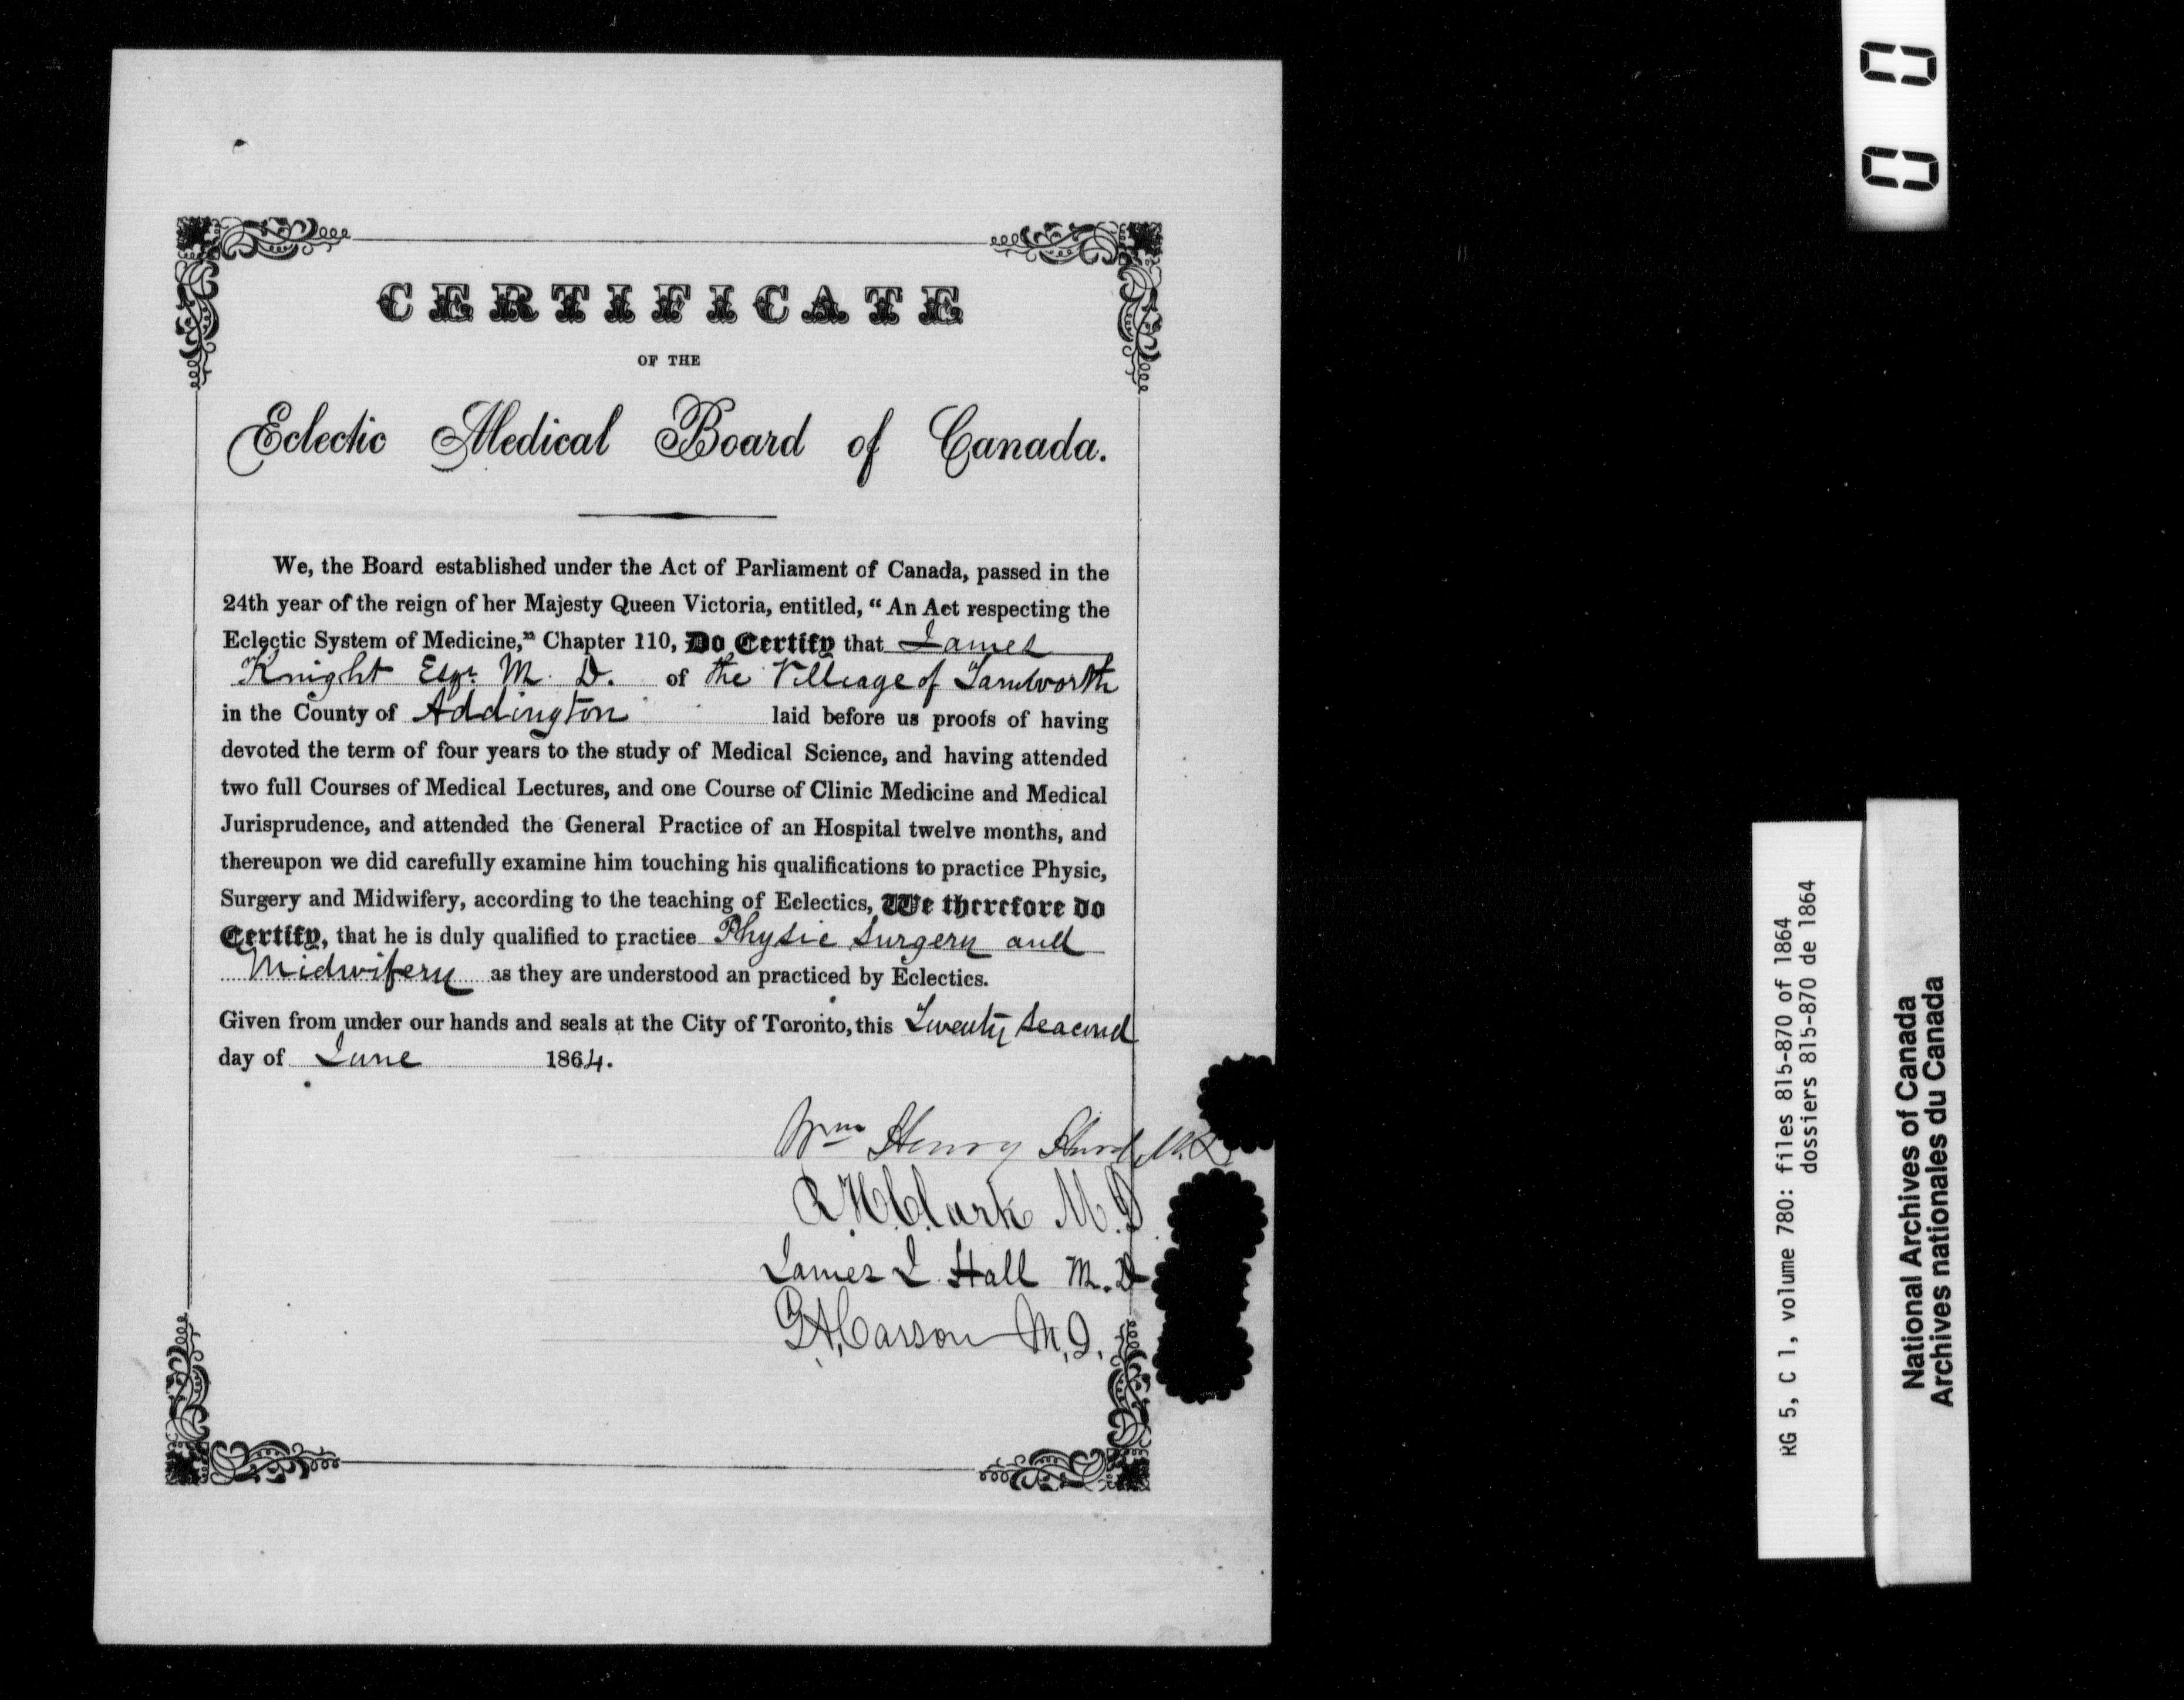 CERTIFICATE
OF THE
Eclectic Medical Board of Canada.
We, the Board established under the Act of Parliament of Canada, passed in the
24th year of the reign of her Majesty Queen Victoria, entitled, “An Act respecting the
Eclectic System of Medicine,” Chapter 110, Do Certify that James
Knight Esqr. M. D. of the Villiage of Tamworth
in the County of Addington laid before us proofs of having
devoted the term of four years to the study of Medical Science, and having attended
two full Courses of Medical Lectures, and one Course of Clinic Medicine and Medical
Jurisprudence, and attended the General Practice of an Hospital twelve months, and
thereupon we did carefully examine him touching his qualifications to practice Physic,
Surgery and Midwifery, according to the teaching of Eclectics, We therefore do
Certify, that he is duly qualified to practice Physic Surgery and
Midwifery as they are understood an practiced by Eclectics.
Given from under our hands and seals at the City of Toronto, this Twenty Seacond
day of June 1864.
Wm Henry M.D.
R.H. Clark M.D
James J. Hall M.D
G.A. Carson M.D.
0 0
RG 5, C 1, volume 780: files 815-870 of 1864
dossiers 815-870 de 1864
National Archives of Canada
Archives nationales du Canada